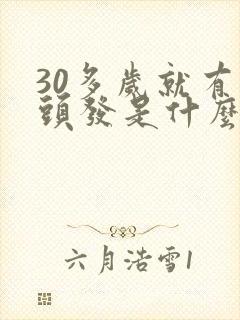 30多歲就有
頭發是什麼
六月浩雪1